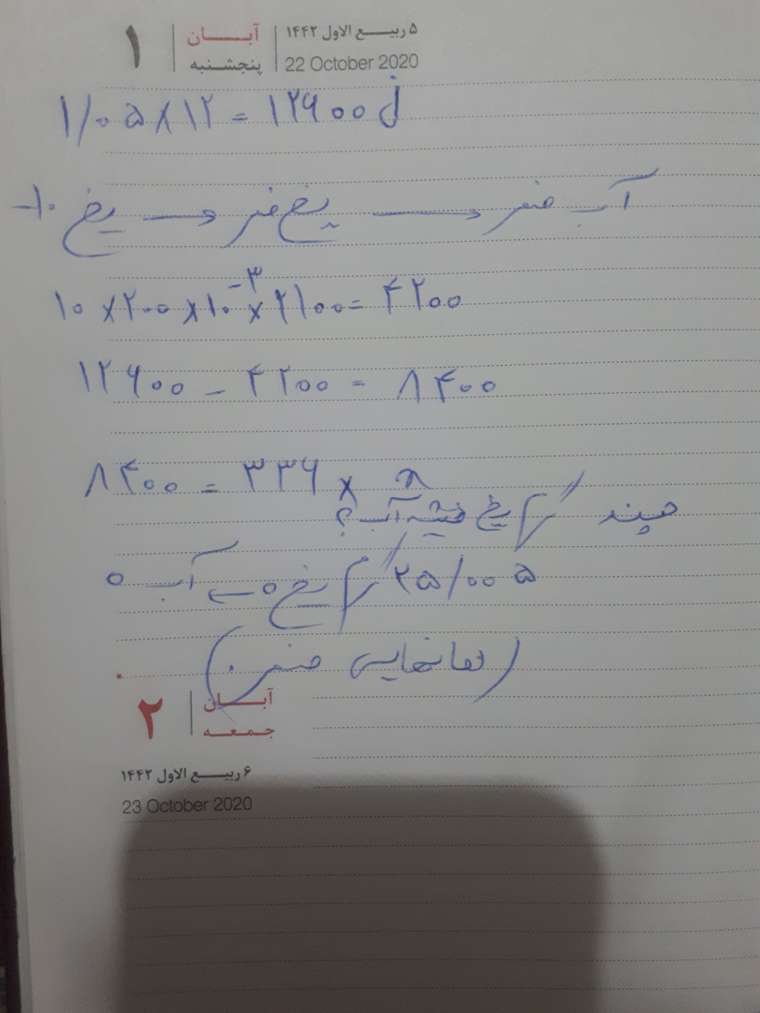 ۵ ربیع الاول ۱۴۴۲ | آبان | ۱
22 October 2020 | پنجشنبه
۱/۰۵ × ۱۲ = ۱۲۶۰۰ J
آب صفر → یخ صفر → یخ -۱۰
۱۰ × ۲۰۰ × ۱۰⁻³ × ۲۱۰۰ = ۴۲۰۰
۱۲۶۰۰ - ۴۲۰۰ = ۸۴۰۰
۸۴۰۰ = ۳۳۶ × n
چند گرم یخ میشه آب؟
۲۵/۰۰۵ گرم یخ ۰ → آب ۰
(دمانهایی صفر)
۲ | آبان
جمعه
۶ ربیع الاول ۱۴۴۲
23 October 2020